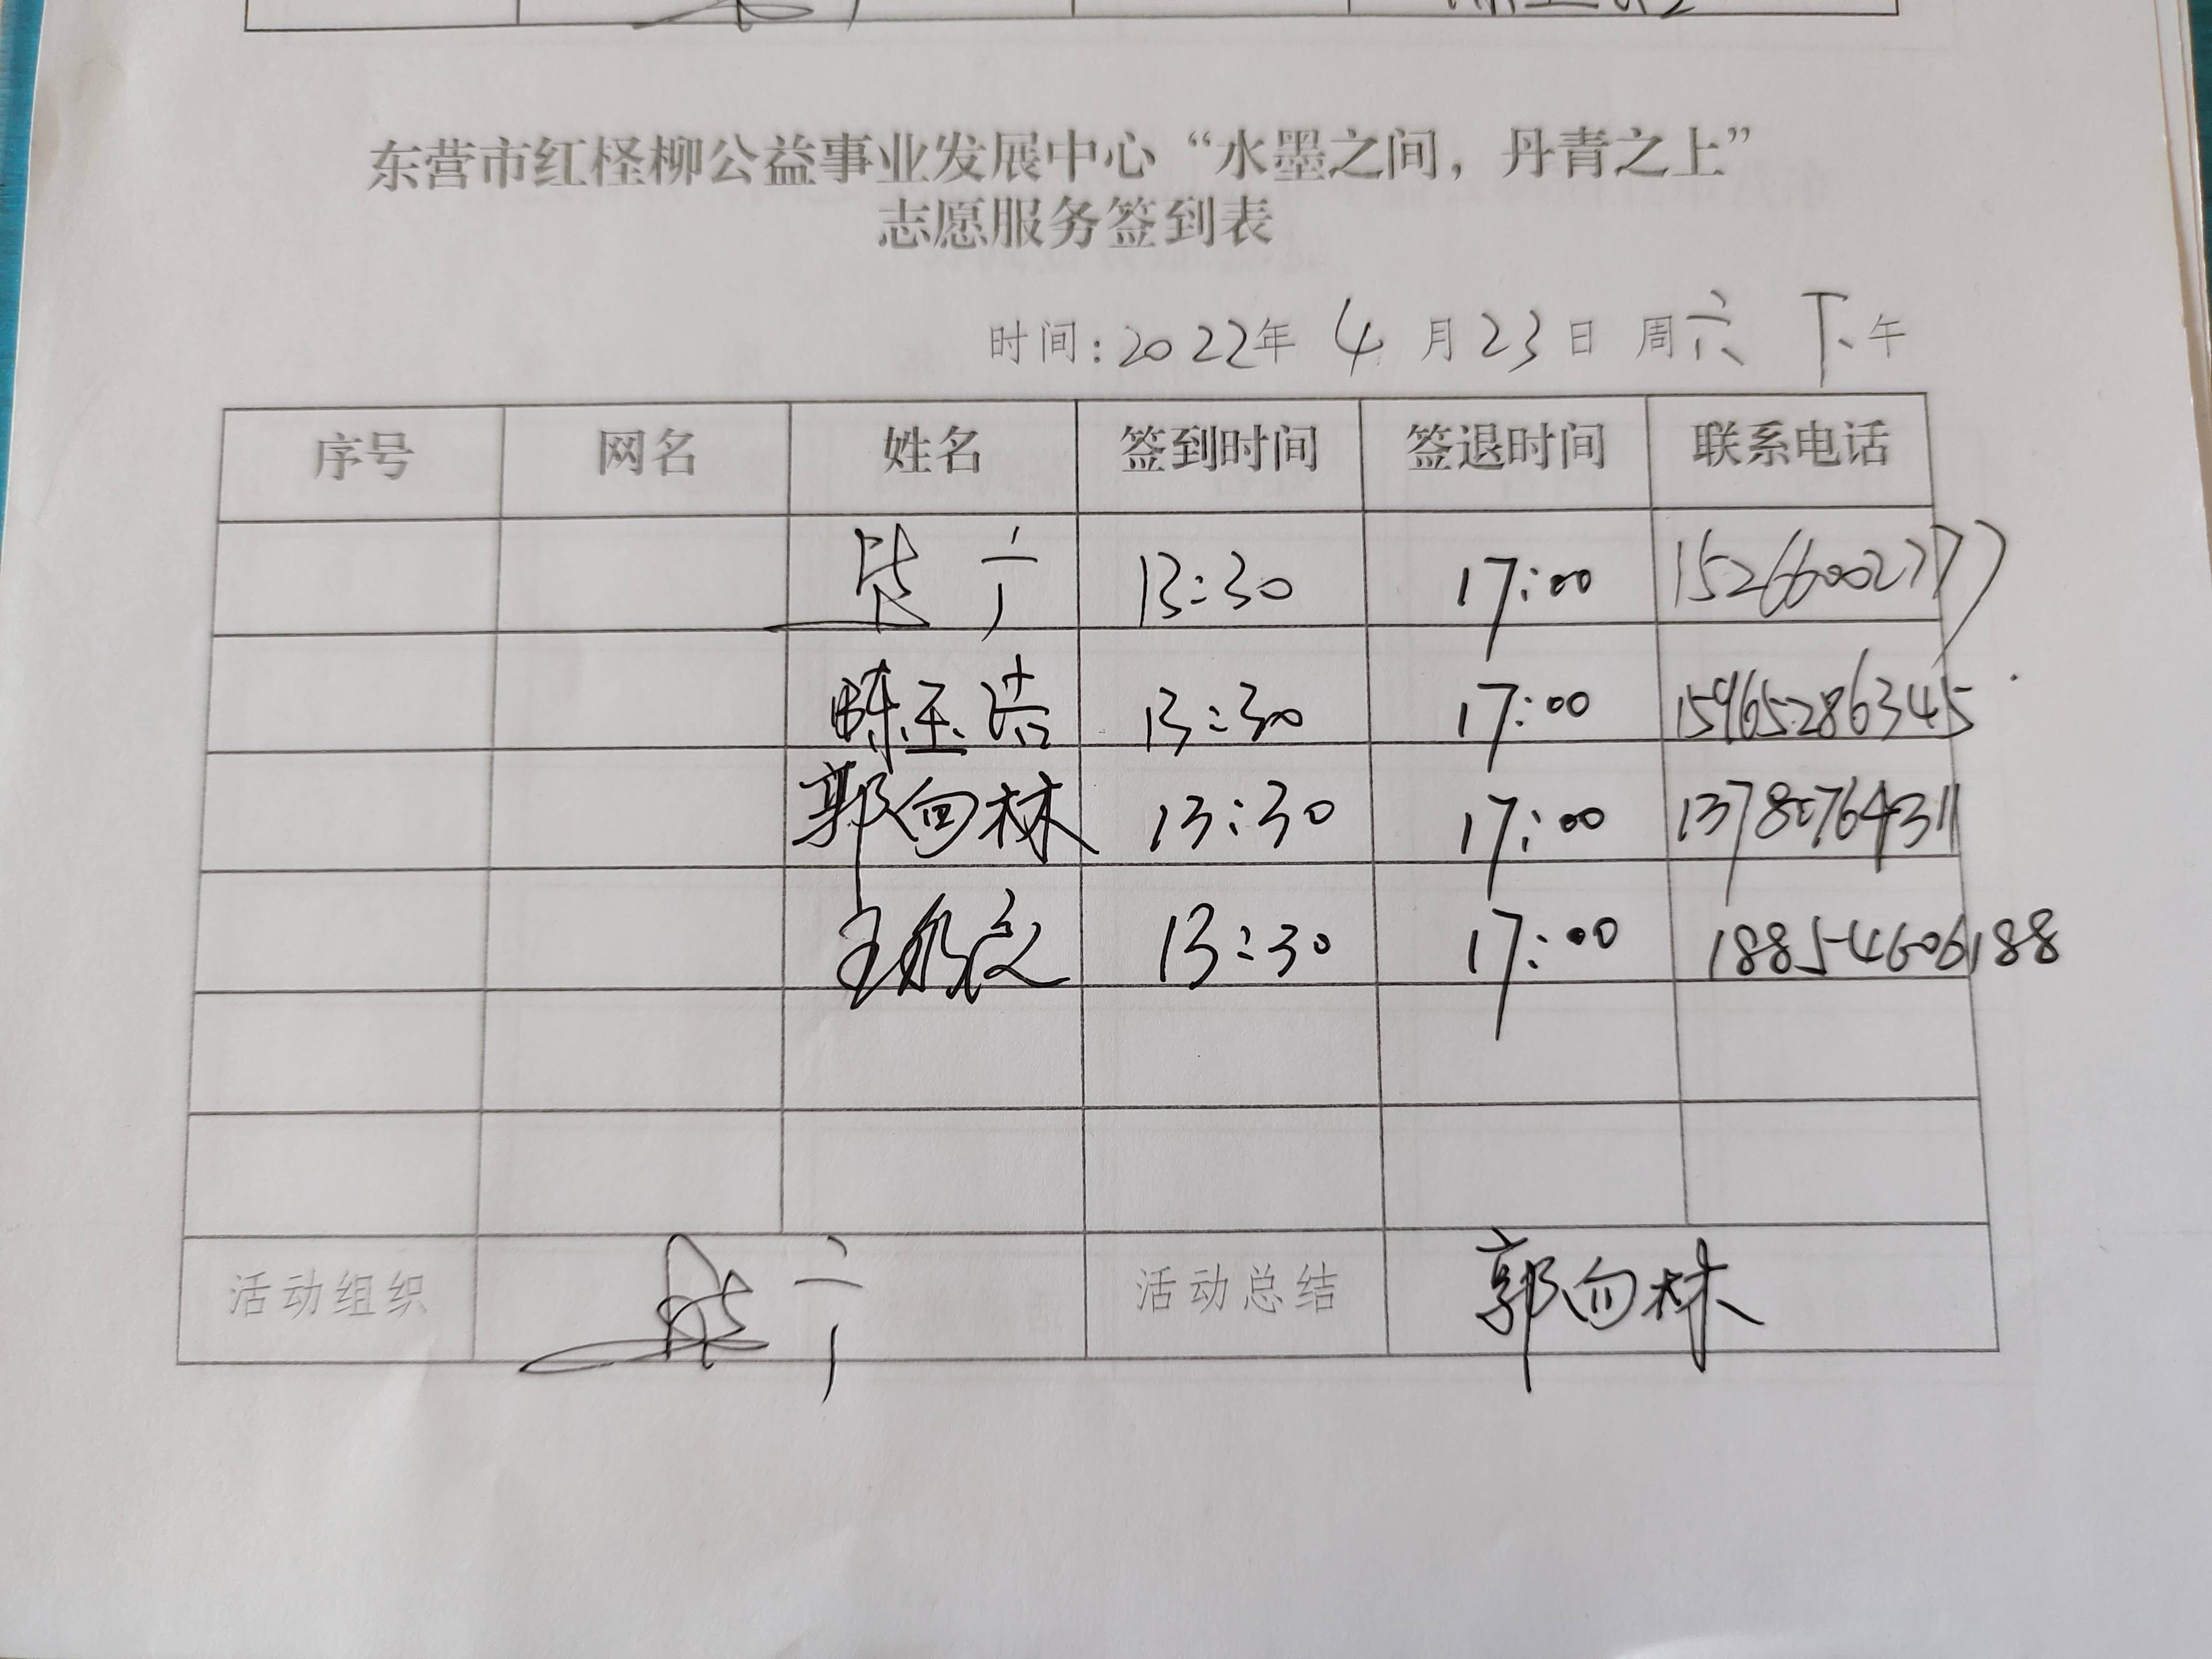 东营市红柽柳公益事业发展中心“水墨之间，丹青之上”
志愿服务签到表
时间：2022年 4 月 23 日 周六 下午
序号 网名 姓名 签到时间 签退时间 联系电话
13:30 17:00 15266002777
陈玉浩 13:30 17:00 15965286345
郭向林 13:30 17:00
13:30 17:00 18854606188
活动组织 活动总结 郭向林